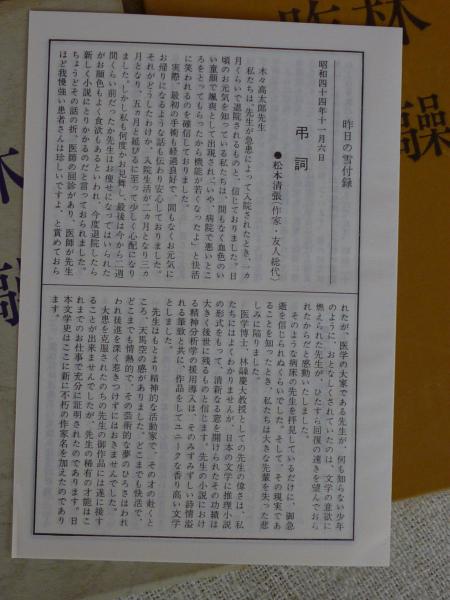 昨日の雪付録
昭和四十四年十一月六日
弔詞
●松本清張(作家・友人総代)
木々高太郎先生
私たちは、先生が急患によって入院されたとき、一カ
月くらいで退院されるものと、信じておりました。日
頃のお元気を知っている私たちは、間もなく血色のい
い童顔で颯爽として出現され、いや、病院で悪いとこ
ろをとってもらったから機能が若くなったよ」と快活
に笑われるのを確信しておりました。
実際、最初の手術も経過良好で、間もなくお元気に
お帰りになるような話も伝わり安心しておりました。
それがどうしたわけか、入院生活が二カ月となり三カ
月となり、五カ月と延びるに至って少しく心配になり
ました。しかし私も何度かお見舞し、最後は今から二週
間くらい前だったか先生はお痩せになってはいられた
がお顔色もよく食欲もあるといわれ、今度退院したら
新しく小説にとりかかるんだと言っておられました。
ちょうどその話の折、医師の回診があり、医師が先生
ほど我慢強い患者さんは珍しいですよ、と賞めておら
れたが、医学の大家である先生が、何も知らない少年
のように、おとなしくされていたのは、文学の意欲に
燃えられた先生が、ひたすら回復の速きを望んでおら
れたからだと感動いたしました。
そのような病床の先生を拝見しているだけに、御急
逝を信じられぬくらいでした。そして、その現実であ
ることを知ったとき、私たちは大きな先輩を失った悲
しみに陥りました。
医学博士、林髞慶大教授としての先生の偉さは、私
たちにはよくわかりませんが、日本の文学に推理小説
の形式をもって、清新なる窓を開けられたその功績は
大きく後世に残るものと信じます。先生の小説におけ
る精神分析学の援用導入は、そのみずみずしい詩情溢
れる筆致と共に、作品をしてユニークな香り高い文学
としました。
先生はもとより精神的な活動家で、その才の赴くと
ころ、天馬空の感がありました。どこまでも快活で、
どこまでも情熱的で、その芸術的な夢のひろさはわれ
われ後進を深く惹きつけずにはおきませんでした。
大患を克服されたのちの先生の御作品には遂に接す
ることが出来ませんでしたが、先生の稀有の才能はこ
れまでのお仕事で充分に証明されたのであります。日
本文学史はここに新に不朽の作家名を加えたのであり
ます。
林
髞